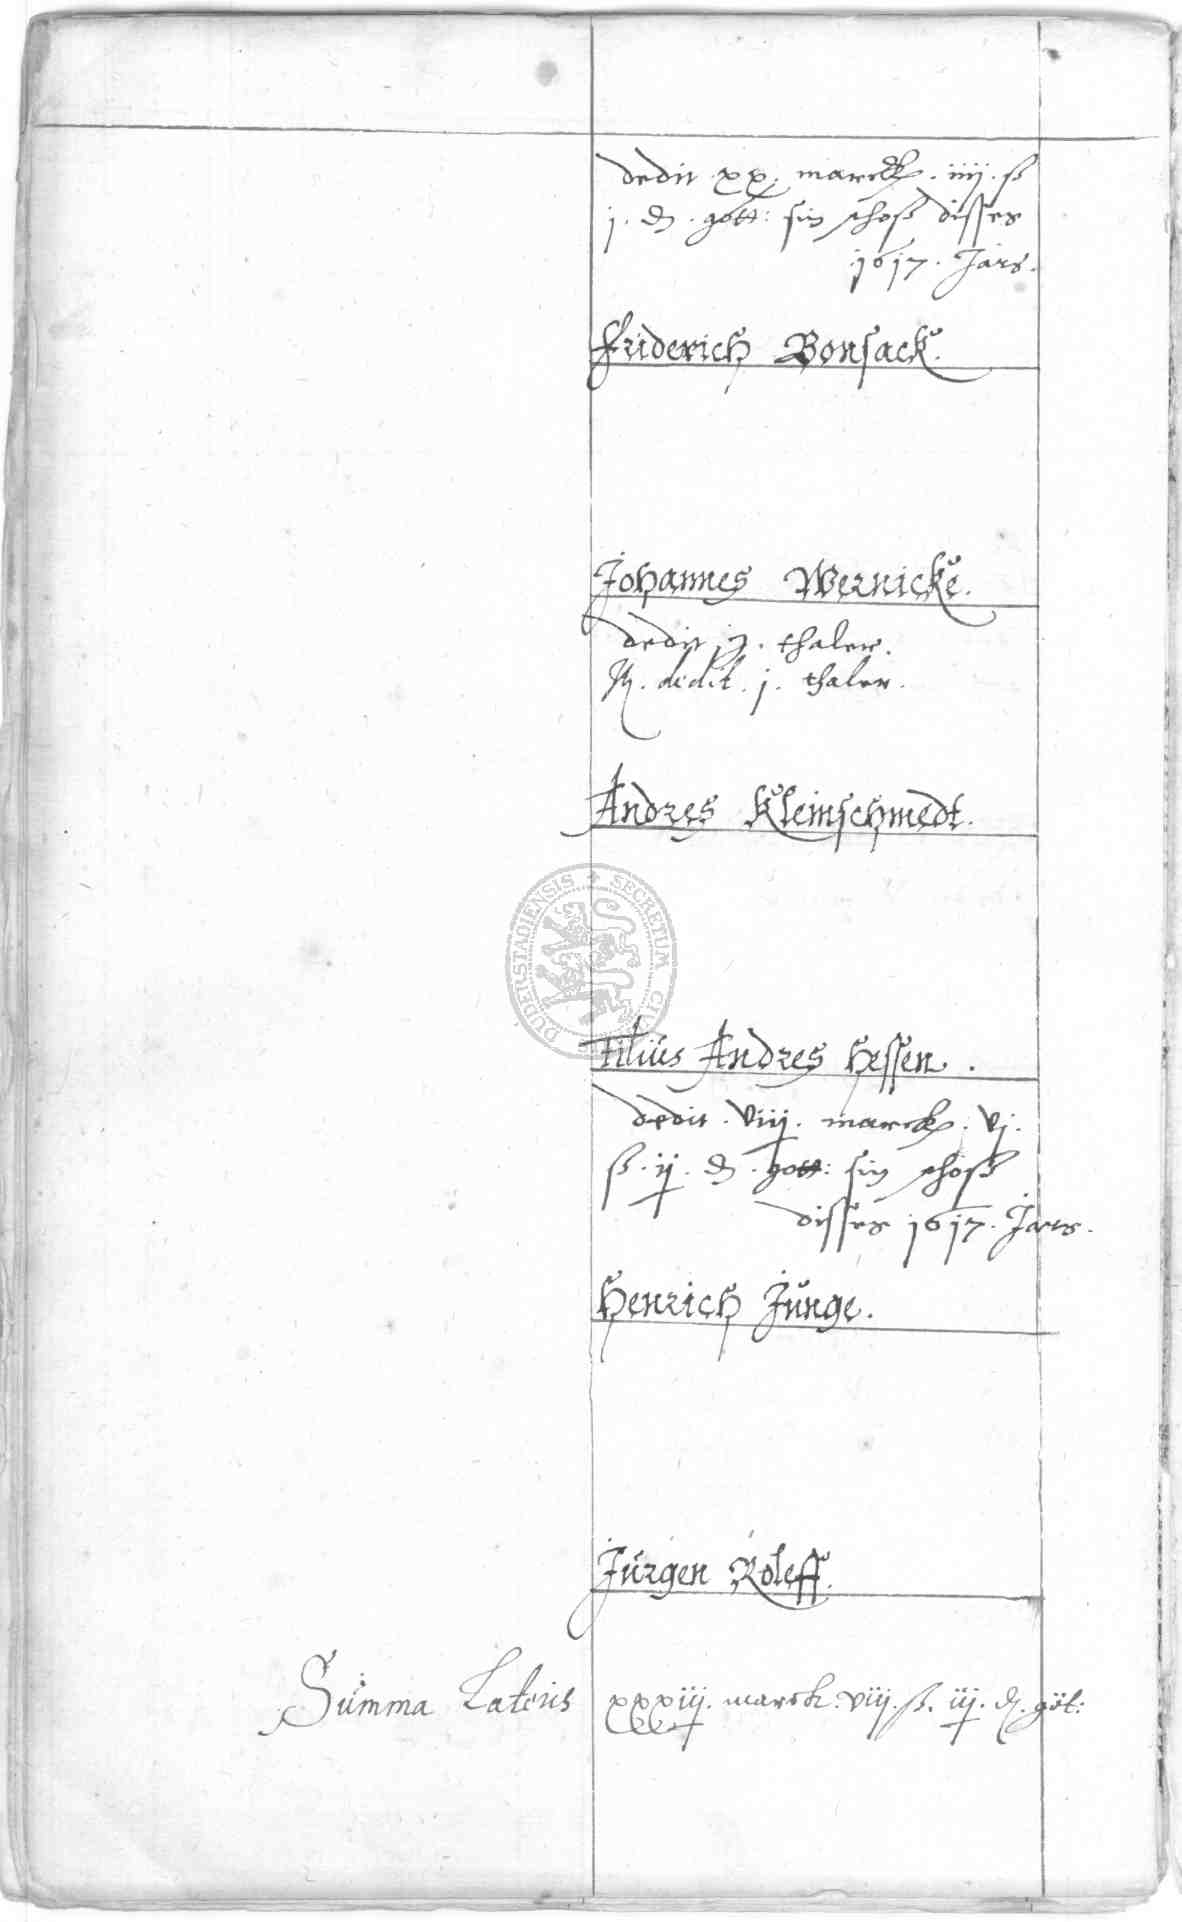 dedit xx. marck. iiij. ß
j. ₰. gott: sin schoß disses
1617. Jars.
Friderich Bonsack.
Johannes Wernicke.
dedit ij. thaler.
dedit. j. thaler.
Andres Kleinschmedt.
Filius Andres Hessen.
dedit. viij. marck. vj.
ß. ij. ₰. gott: sin schoß
disses 1617. Jars.
Henrich Junge.
Jurgen Roleff.
Summa Lateris xxxiij. marck. viij. ß. iij. ₰. gót:
DUDERSTADIENSIS + SECRETUM CIVI